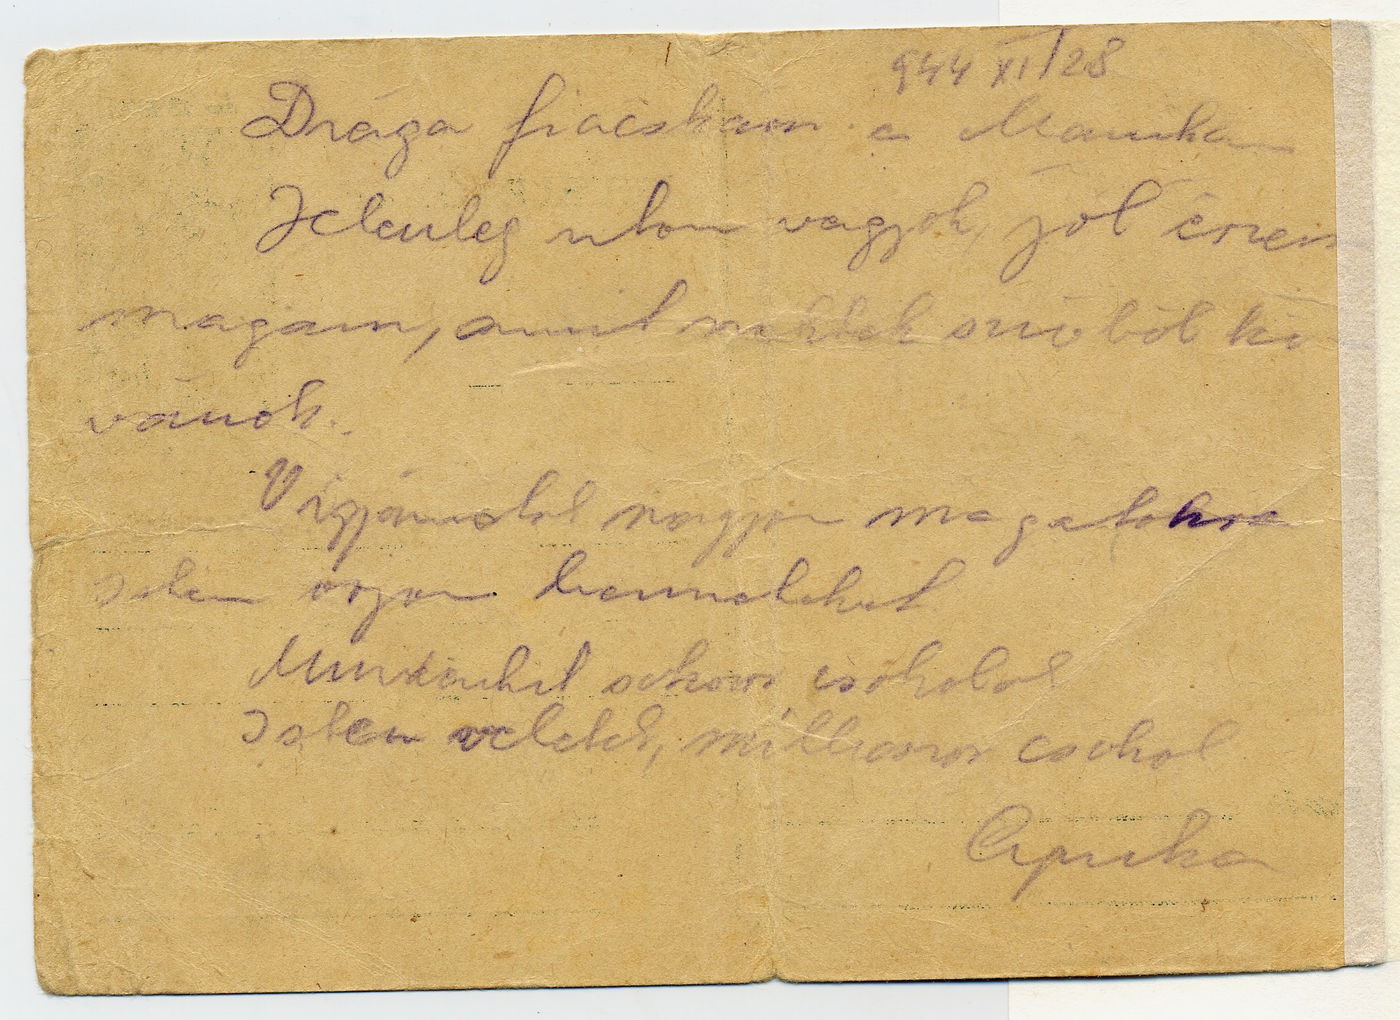 944 XI/28
Drága fiacskám és Mamika
Jelenleg uton vagyok, jól érzem
magam, amit nektek szivből ki
vánok.
Vigjázzatok nagyon magatokra
Isten ovjon benneteket
Mindenkit sokszor csokolok
Isten veletek, milliószor csokol
Apuka